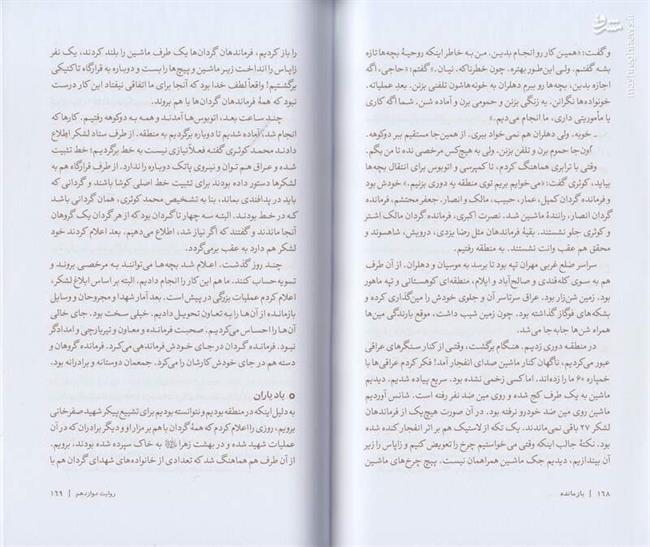 و گفت: «همین کار رو انجام بدین. من به خاطر اینکه روحیهٔ بچه‌ها تازه
بشه گفتم. ولی این‌طور بهتره. چون خطرناکه. نیان.» گفتم: «حاجی، اگه
اجازه بدین، بچه‌ها رو ببرم دهلران به خونه‌هاشون تلفنی بزنن. بعدِ عملیاته.
خونواده‌ها نگرانن. یه زنگی بزنن و حمومی برن و آماده شن. شما اگه کاری
یا مأموریتی داری، ما انجام می‌دیم.»
ـ خوبه. ولی دهلران هم نمی‌خواد ببری. از همین‌جا مستقیم ببر دوکوهه.
اون‌جا حموم برن و تلفن بزنن. ولی به هیچ‌کس مرخصی نده تا من بگم.
وقتی با ترابری هماهنگ کردم، تا کمپرسی و اتوبوس برای انتقال بچه‌ها
بیاید، کوثری گفت: «می‌خوایم بریم توی منطقه یه دوری بزنیم.» خودش بود
و فرمانده گردان کمیل، عمار، حبیب، مالک و انصار. جعفر محتشم، فرمانده
گردان انصار، رانندهٔ ماشین شد. نصرت اکبری، فرمانده گردان مالک اشتر
و کوثری جلو نشستند. بقیهٔ فرمانده‌های گردان‌ها مثل رضا یزدی، درویش، شاهسوند و
محقق هم عقب وانت نشستند. به منطقه رفتیم.
سراسر ضلع غربی مهران تپه بود تا برسد به موسیان و دهلران. از آن طرف
هم به سوی کله‌قندی و صالح‌آباد و ایلام، منطقه‌ای کوهستانی و تپه ماهور
بود. زمین شن‌زار بود. عراق سرتاسر آن و جلوی خودش را مین‌گذاری کرده و
بشکه‌های فوگاز گذاشته بود. چون زمین شیب داشت، موقع بارندگی مین‌ها
همراه شن‌ها جابه‌جا می‌شد.
در منطقه دوری زدیم. هنگام برگشت، وقتی از کنار سنگرهای عراقی
عبور می‌کردیم، ناگهان کنار ماشین صدای انفجار آمد! فکر کردم عراقی‌ها با
خمپاره ۶۰ ما را زده‌اند. اما کسی زخمی نشده بود. سریع پیاده شدیم. دیدیم
ماشین به یک طرف کج شده و روی مین ضد نفر رفته است. شانس آوردیم
ماشین روی مین ضد خودرو نرفته بود. در آن صورت هیچ‌یک از فرمانده‌هان
لشکر ۲۷ باقی نمی‌ماندند. یک تکه از لاستیک هم بر اثر انفجار کنده شده
بود. نکتهٔ جالب اینکه وقتی می‌خواستیم چرخ را تعویض کنیم و زاپاس را زیر
آن بیندازیم، دیدیم جک ماشین همراهمان نیست. پیچ چرخ‌های ماشین
۱۶۸ | بازمانده
را باز کردیم، فرماندهان گردان‌ها یک طرف ماشین را بلند کردند، یک نفر
زاپاس را انداخت زیر ماشین و پیچ‌ها را بست و دوباره به قرارگاه تاکتیکی
برگشتیم! واقعاً لطف خدا بود که آنجا برای ما اتفاقی نیفتاد این کار درست
نبود که همهٔ فرماندهان گردان‌ها با هم بروند.
چند ساعت بعد، اتوبوس‌ها آمدند و همه به دوکوهه رفتیم. کارها که
انجام شد، آماده شدیم تا دوباره برگردیم به منطقه، از طرف ستاد لشکر اطلاع
دادند محمد کوثری گفته فعلاً نیازی نیست به خط برگردیم! خط تثبیت
شده و عراق هم توان و نیروی پاتک دوباره را ندارد. از طرف قرارگاه هم به
لشکرها دستور داده بودند برای تثبیت خط اصلی کوشا باشند و گردانی که
باید در پدافندی بماند، بنا به تشخیص محمد کوثری، همان گردانی باشد
که در خط بودند. البته سه چهار تا گردان بود که از هر گردان یک گروهان
آنجا ماندند و گفتند که اگر نیاز شد، اطلاع می‌دهیم. بعد اعلام کردند
لشکر هم دارد به عقب برمی‌گردد.
چند روز گذشت. اعلام شد بچه‌ها می‌توانند به مرخصی بروند و
تسویه‌حساب کنند. ما هم این کار را انجام دادیم. البته بر اساس ابلاغ لشکر،
اعلام کردم عملیات بزرگی در پیش است. بعد آمار شهدا و مجروحان و وسایل
بازمانده از آن‌ها را به تعاون تحویل دادیم. خیلی سخت بود. جای خالی
آن‌ها را احساس می‌کردیم. صحبت فرمانده و معاون و تیربارچی و امدادگر
نبود. فرمانده گردان در جای خودش فرماندهی می‌کرد. فرمانده گروهان و
دسته هم در جای خودش کارشان را می‌کرد. جمعمان دوستانه و برادرانه بود.
یاد یاران
به دلیل اینکه در منطقه بودیم و نتوانسته بودیم برای تشییع پیکر شهید صفرخانی
برویم، روزی را اعلام کردم که همهٔ گردان با هم بر مزار او و دیگر برادران که در آن
عملیات شهید شده و در بهشت زهرا به خاک سپرده شده بودند، برویم.
از آن طرف هم هماهنگ شد که تعدادی از خانواده‌های شهدای گردان هم با
روایت دوازدهم | ۱۶۹